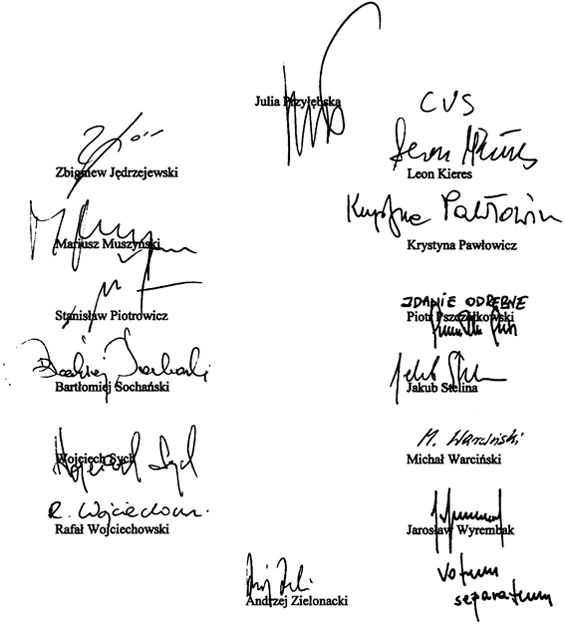 Julia Przyłębska
CVS
Zbigniew Jędrzejewski
Leon Kieres
Leon Kieres
Krystyna Pawłowicz
Mariusz Muszyński
Krystyna Pawłowicz
ZDANIE ODRĘBNE
Stanisław Piotrowicz
Piotr Pszczółkowski
Bartłomiej Sochański
Jakub Stelina
M. Warciński
Wojciech Sych
Wojciech Sych
Michał Warciński
R. Wojciechow
Rafał Wojciechowski
Jarosław Wyrembak
votum
separatum
Andrzej Zielonacki